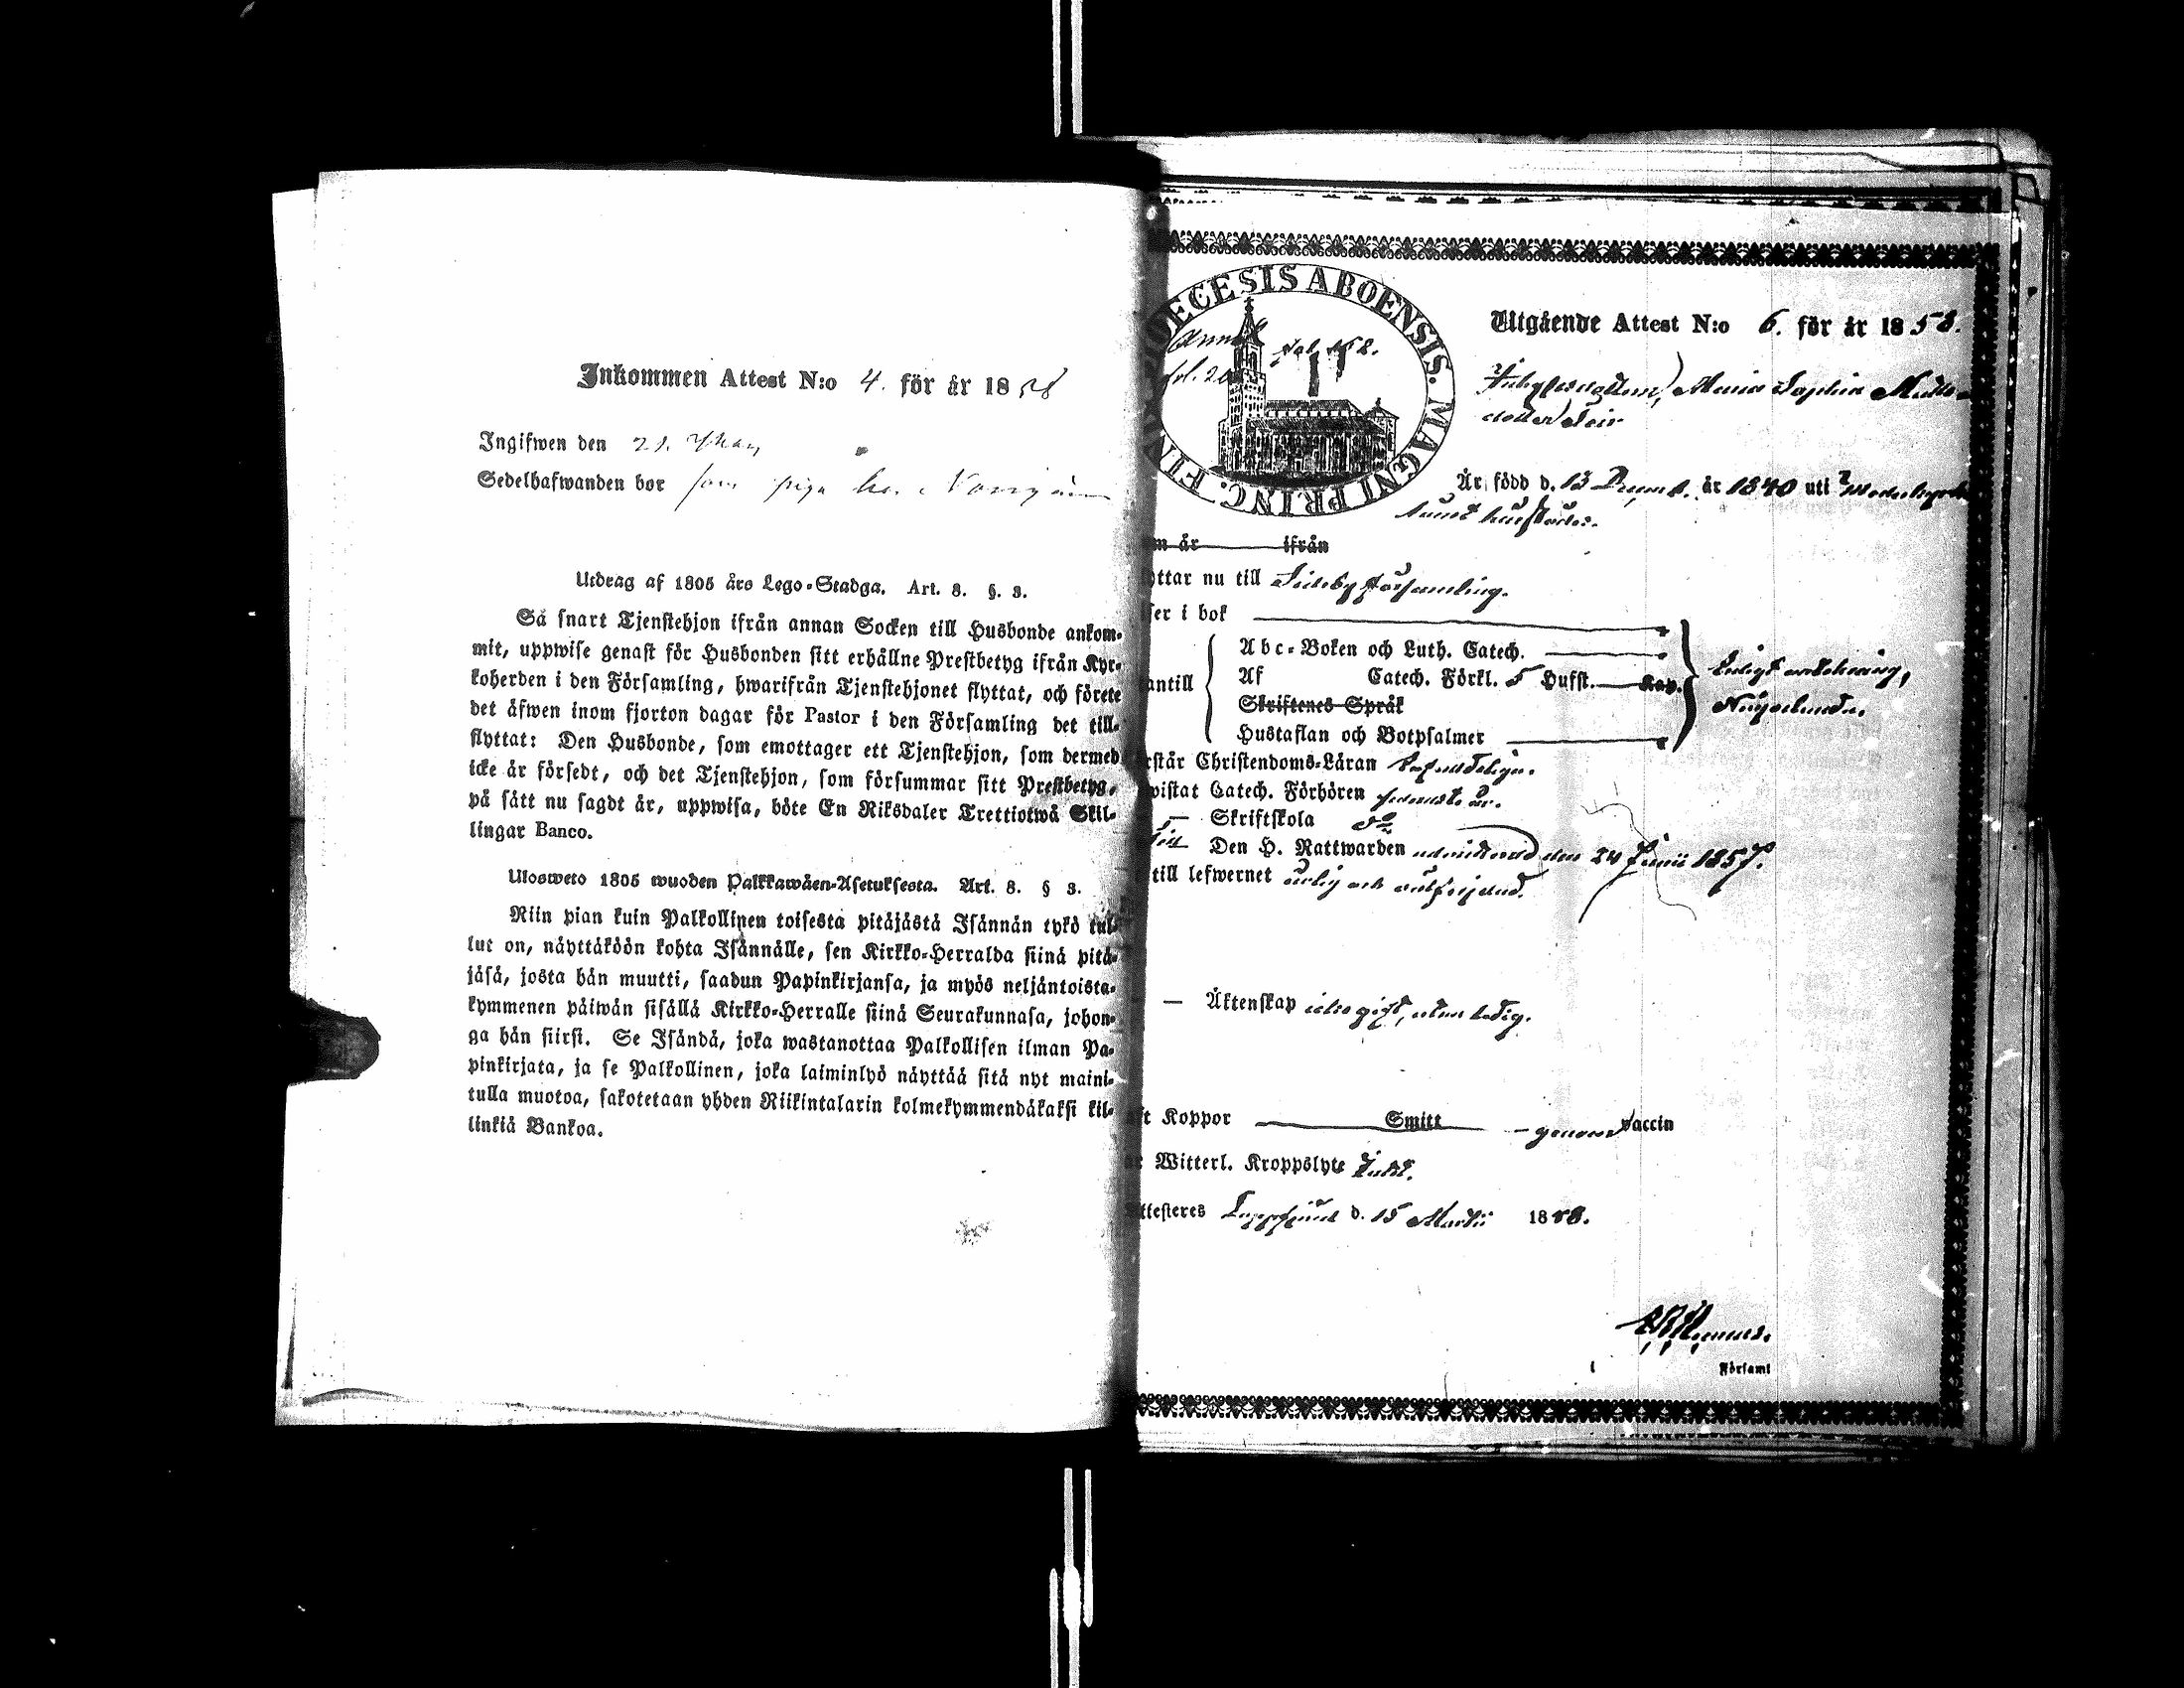 Inkommen Attest N:o 4. för år 1858
Ingifwen den 21. Maj
Sedelhafwanden bor som piga hos
Utdrag af 1805 års Lego-Stadga. Art. 8. §. 3.
Så snart Tjenstehjon ifrån annan Socken till Husbonde ankom-
mit, uppwise genast för Husbonden sitt erhållne Prestbetyg ifrån Kyr-
koherden i den Församling, hwarifrån Tjenstehjonet flyttat, och förete
det äfwen inom fjorton dagar för Pastor i den Församling det till-
flyttat: Den Husbonde, som emottager ett Tjenstehjon, som dermed
icke är försedt, och det Tjenstehjon, som försummar sitt Prestbetyg,
på sätt nu sagdt är, uppwisa, böte En Riksdaler Trettiotwå Skil-
lingar Banco.
Ulosweto 1805 wuoden Palkkawäen-Asetuksesta. Art. 8. § 3.
Niin pian kuin Palkollinen toisesta pitäjästä Isännän tykö tul-
lut on, näyttäköön kohta Isännälle, sen Kirkko-Herralda siinä pitä-
jäsä, josta hän muutti, saadun Papinkirjansa, ja myös neljäntoista-
kymmenen päiwän sisällä Kirkko-Herralle siinä Seurakunnasa, johon-
ga hän siirsi. Se Isändä, joka wastanottaa Palkollisen ilman Pa-
pinkirjata, ja se Palkollinen, joka laiminlyö näyttää sitä nyt maini-
tulla muotoa, sakotetaan yhden Riikintalarin kolmekymmendäkaksi kil-
linkiä Bankoa.
DIOECESIS ABOENSIS. MAGNI PRINC. FIN
Utgående Attest N:o 6. för år 1858.
Inhysesdottern, Maria Sophia Matts-
dotter
Är född d. 13 Decemb. år 1840 uti
om år ifrån
yttar nu till Sideby församling.
ser i bok
antill
Abc-Boken och Luth. Catech.
Af Catech. Förkl. 5 Hufst. Kap.
Skriftenes Språk
Hustaflan och Botpsalmer
Enligt anteckning,
Någorlunda.
rstår Christendoms-Läran
wistat Catech. Förhören sednaste år.
— Skriftskola do
Till Den H. Nattwarden admitterad den 24 Junii 1857.
till lefwernet ärlig och
— Äktenskap icke gift, utan ledig.
ft Koppor Smitt — genom vaccin
ar Witterl. Kroppslyte Intet.
ttesteres Lappfjärd d. 15 Martii 1858.
Församl